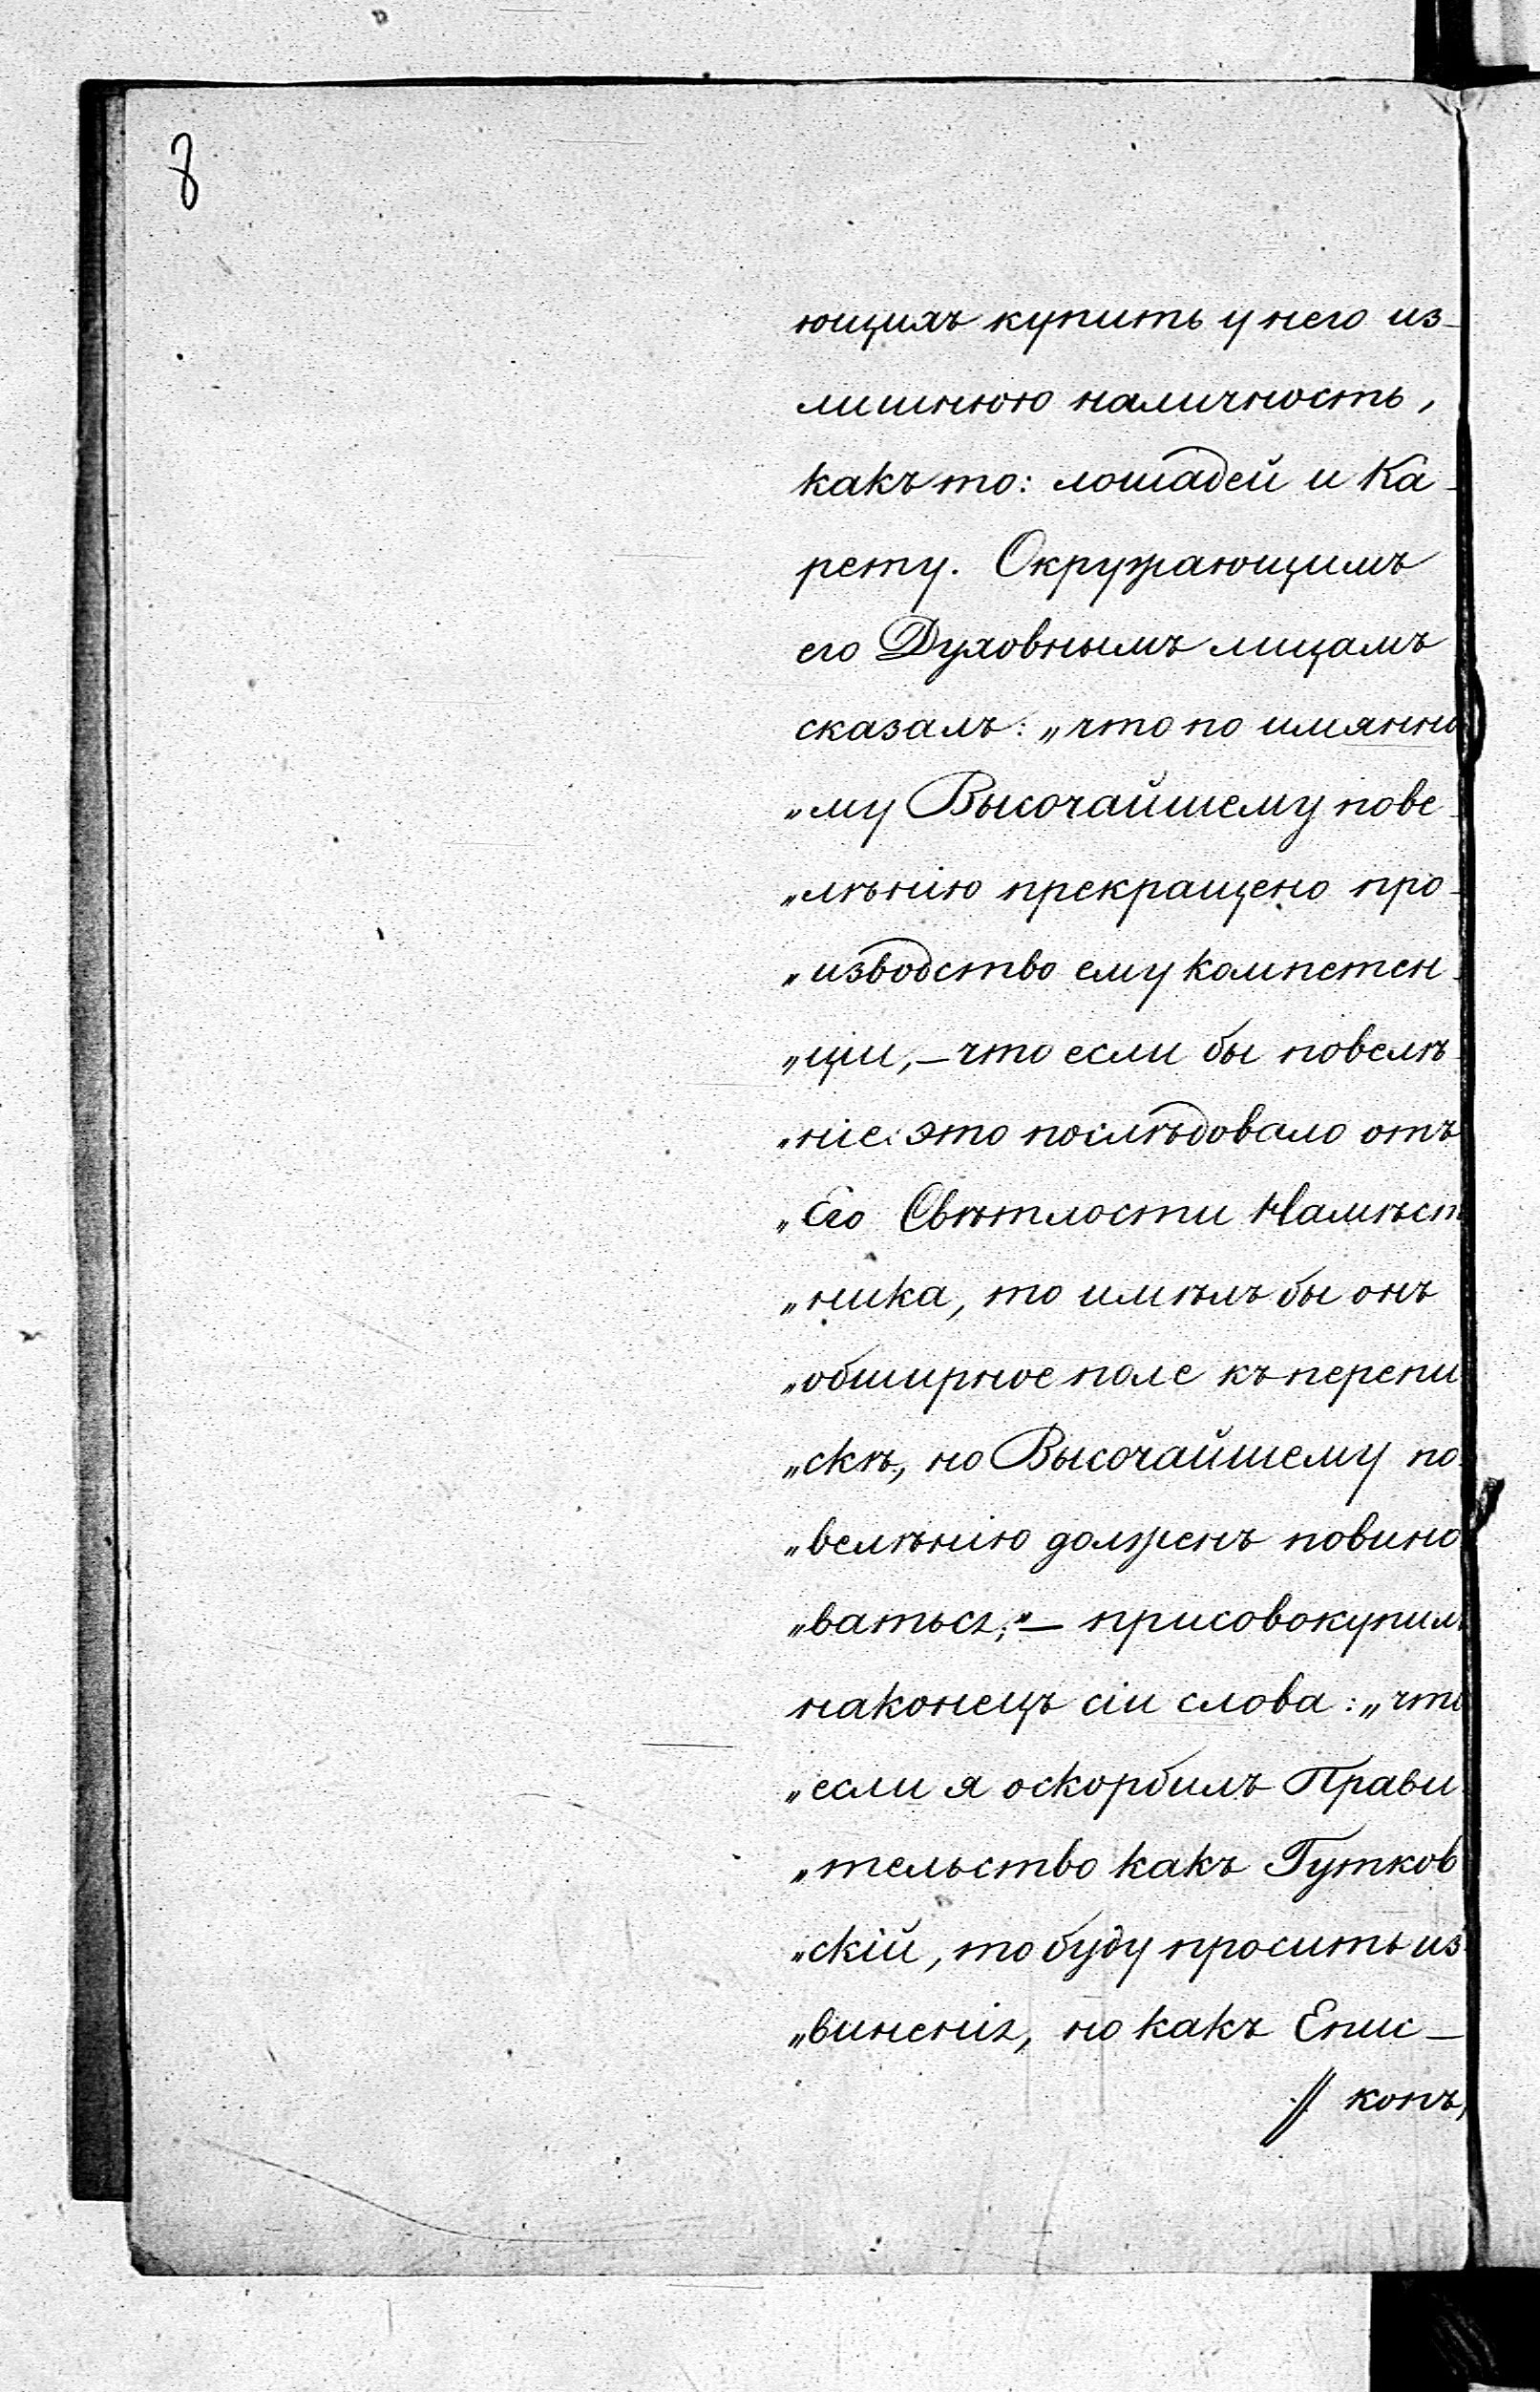 8
ющихъ купить у него из-
лишнюю наличность,
какъ то: лошадей и Ка-
рету. Окружающимъ
его Духовнымъ лицамъ
сказалъ: „что по имянно
„му Высочайшему пове-
„лѣнію прекращено про-
„изводство ему компетен-
„ціи, – что если бы повелѣ-
„ніе это послѣдовало отъ
„Его Свѣтлости Намѣст
„ника, то имѣлъ бы онъ
„обширное поле къ перепи
„скѣ, но Высочайшему по-
„велѣнію долженъ повино
„ваться;" – присовокупилъ
наконецъ сіи слова: „что
„если я оскорбилъ Прави
„тельство какъ Гутков
„скій, то буду просить из
„виненія, но какъ Епис –
// копъ,